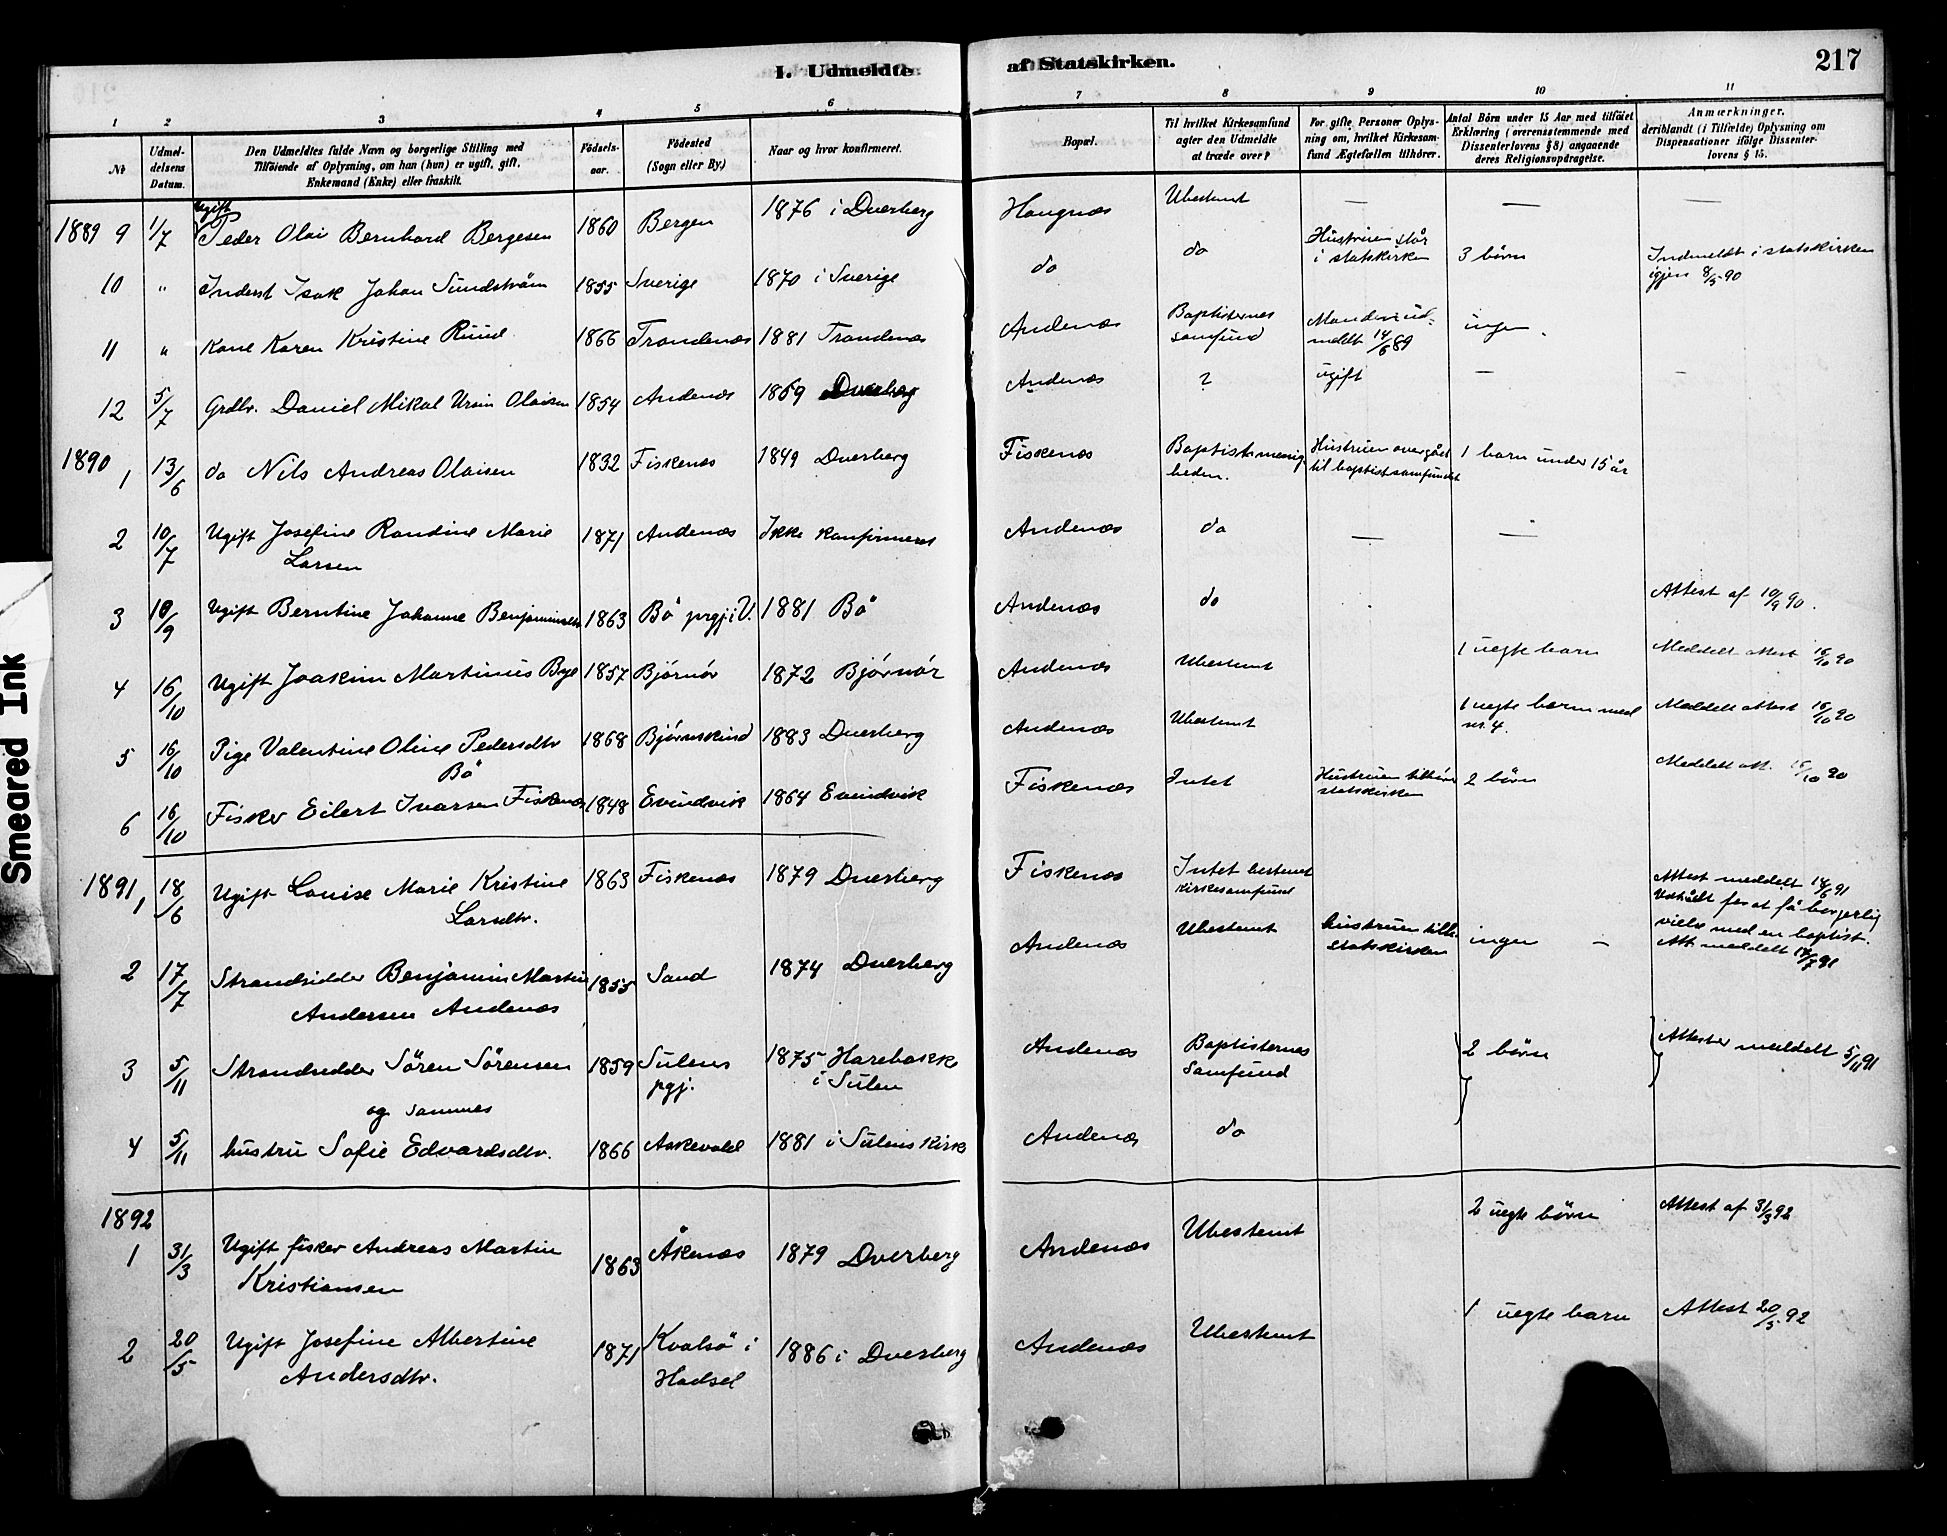 I. Udmeldte af Statskirken. 217
1 2 3 4 5 6 7 8 9 10 11
Nt Udmeldelsens Datum. Den Udmeldtes fulde Navn og borgerlige Stilling med Tilföiende af Oplysning, om han (hun) er ugift, gift, Enkemand (Enke) eller fraskilt. Födselsaar. Födested (Sogn eller By.) Naar og hvor konfirmeret. Bopæl. Til hvilket Kirkesamfund agter den Udmeldte at træde over? For gifte Personer Oplysning om, hvilket Kirkesamfund Ægtefællen tilhörer. Antal Börn under 15 Aar med tilföiet Erklæring (overensstemmende med Dissenterlovens § 8) angaaende deres Religionsopdragelse. Anmærkninger, deriblandt (i Tilfælde) Oplysning om Dispensationer ifölge Dissenterlovens § 15.
1889 9 1/7 Ugift Peder Olai Bernhard Bergesen 1860 Bergen 1876 i Dverberg Haugnæs Ubestemt — — —
10 " Inderst Isak Johan Sundström 1855 Sverige 1870 i Sverige do do Hustruen står i statskirken 3 börn Indmeldt i statskirken igjen 8/5 90
11 " Kone Karen Kristine Ruud 1866 Trondenæs 1881 Trondenæs Andenæs Baptisternes samfund Manden udmeldt 14/6 89 ingen
12 5/7 Grdbr. Daniel Mikal Ursin Olaisen 1854 Andenæs 1869 Dverberg Andenæs ? ugift — —
1890 1 13/6 do Nils Andreas Olaisen 1832 Fiskenæs 1849 Dverberg Fiskenæs Baptistmenigheden. Hustruen overgået til baptistsamfundet 1 barn under 15 år
2 10/7 Ugift Josefine Randine Marie Larsen 1871 Andenæs Ikke konfirmeret Andenæs do — —
3 10/9 Ugift Berntine Johanne Benjaminsen 1863 Bö prgj. i V. 1881 Bö Andenæs do Attest af 10/9 90.
4 16/10 Ugift Joakim Martinus Bye 1857 Bjørnør 1872 Bjørnør Andenæs Ubestemt 1 uegte barn Meddelt attest 16/10 90
5 16/10 Pige Valentine Oline Pedersdtr Bö 1868 Bjørnskind 1883 Dverberg Andenæs Ubestemt 1 uegte barn med nr. 4. Meddelt attest 16/10 90
6 16/10 Fisker Eilert Ivarsen Fiskenæs 1848 Evindvik 1864 Evindvik Fiskenæs Intet Hustruen tilhører statskirken 2 börn Meddelt att. 16/10 90
1891 1 18/6 Ugift Louise Marie Kristine Larsdtr. 1863 Fiskenæs 1879 Dverberg Fiskenæs Intet bestemt kirkesamfund Attest meddelt 18/6 91 Udtrådt for at få borgerlig vielse med en baptist.
2 17/7 Strandsidder Benjamin Martin Andersen Andenæs 1855 Sand 1874 Dverberg Andenæs Ubestemt hustruen tilh. statskirken ingen — Att. meddelt 17/7 91
3 5/11 Strandsidder Sören Sörensen 1859 Sulens pgj. 1875 i Sulen Andenæs Baptisternes Samfund 2 börn Attester meddelt 5/11 91
og sammes
4 5/11 hustru Sofie Edvardsdtr. 1866 Askevold 1881 i Sulens kirk Andenæs do
1892
1 31/3 Ugift fisker Andreas Martin Kristiansen 1863 Åkenæs 1879 Dverberg Andenæs Ubestemt 2 uegte börn Attest af 31/3 92
2 20/5 Ugift Josefine Albertine Andersdtr. 1871 Kvalsö i Hadsel 1886 i Dverberg Andenæs Ubestemt 1 uegte barn Attest 20/5 92
Smeared Ink